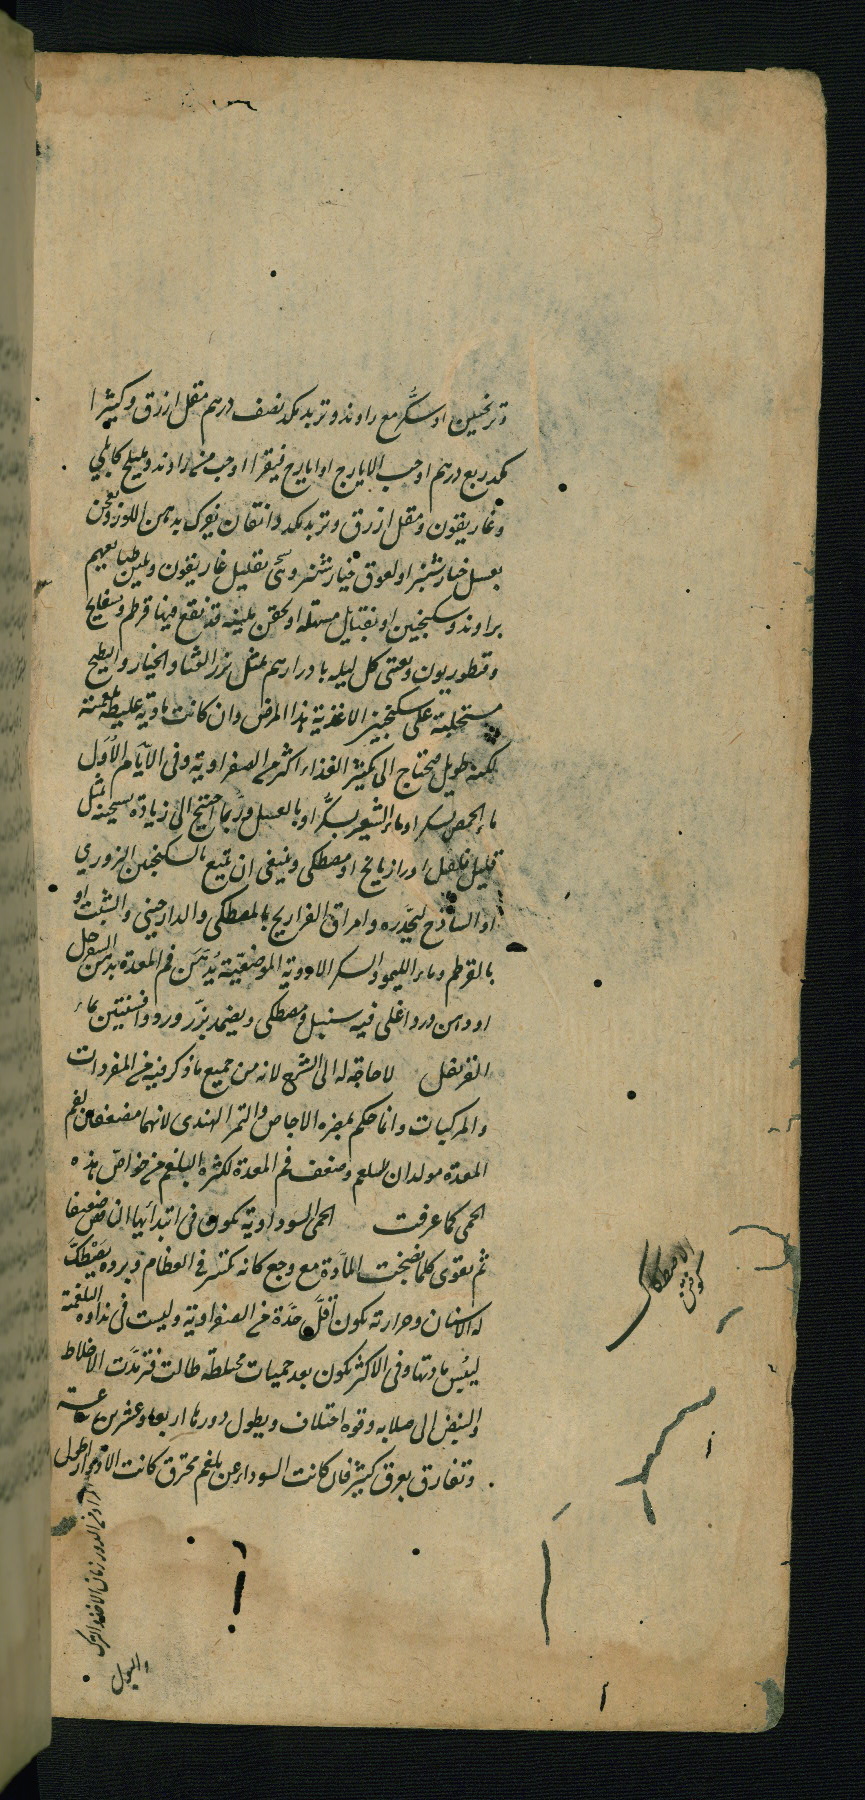 وترنجبين او سكّر مع راوند وتربد مكد نصف درهم مقل ازرق وكثيرا
مكد ربع درهم او حب الايارج او ايارج فيقرا او حب من راوند وهليلج كابلي
وغاريقون ومقل ازرق وتربد مكد دانقان يعرك بدهن اللوز ويعجن
بعسل خيار شنبر او لعوق خيار شنبر وسحى بقليل غاريقون وتلين طبايعهم
براوند وسكنجبين او بفتايل مسهله او بحقن لينه قد نقع فيها قرطم وبسفايج
وقنطوريون ويعتى كل ليله بادرارهم بمثل بزر القثا والخيار والبطيخ
مستحلبة على سكنجبين الاغذية هذا المرض وان كانت مادته غليظة بلغمية
لكنه طويل فيحتاج الى تكثير الغذاء اكثر من الصفراوية وفى الايّام الاوّل
ماء الحمص بسكر او ماء الشعير بسكّر او بالعسل وربما احتيج الى زيادة تسخينه بمثل
قليل فلفل او رازيانج او مصطكى وينبغى ان يتبع بالسكنجبين البزورى
او الساذج ليحدره وامراق الفراريج بالمصطكى والدارصينى والشبت او
بالقرطم وماء الليمو والسكر الادوية الموضعيّة يُدهن فم المعدة بدهن السفرجل
او دهن ورد اغلى فيه سنبل ومصطكى ويضمد بزر ورد وافسنتين بماء
القرنفل لا حاجة له الى الشرح لانه من جميع ما ذكر فيه من المفردات
والمركبات وانما حكم بمضره الاجاص والتمر الهندى لانهما مضعفان لفم
المعدة مولدان للبلغم وضعف فم المعدة لكثرة البلغم من خواصّ هذه
الحمى كما عرفت الحمى السوداوية تكون فى ابتدائها انافض ضعيفا
ثم يقوى كلما نضجت المادّة مع وجع كانه تكسر فى العظام وبرد يصطكّ
له الاسنان وحرارته تكون اقلّ حدّة من الصفراوية وليست فى نداوة البلغمية
ليبس مادتها وفى الاكثر تكون بعد حميات مختلطة طالت فترمّدت الاخلاط
والنبض الى صلابه وقوه اختلاف ويطول دورها اربعا وعشرين ساعة
وتفارق بعرق كثير فان كانت السوداء عن بلغم محترق كانت الادوار اطول
المراد من الدور زمان الاخذ والترك
والبول
الاصطكاك